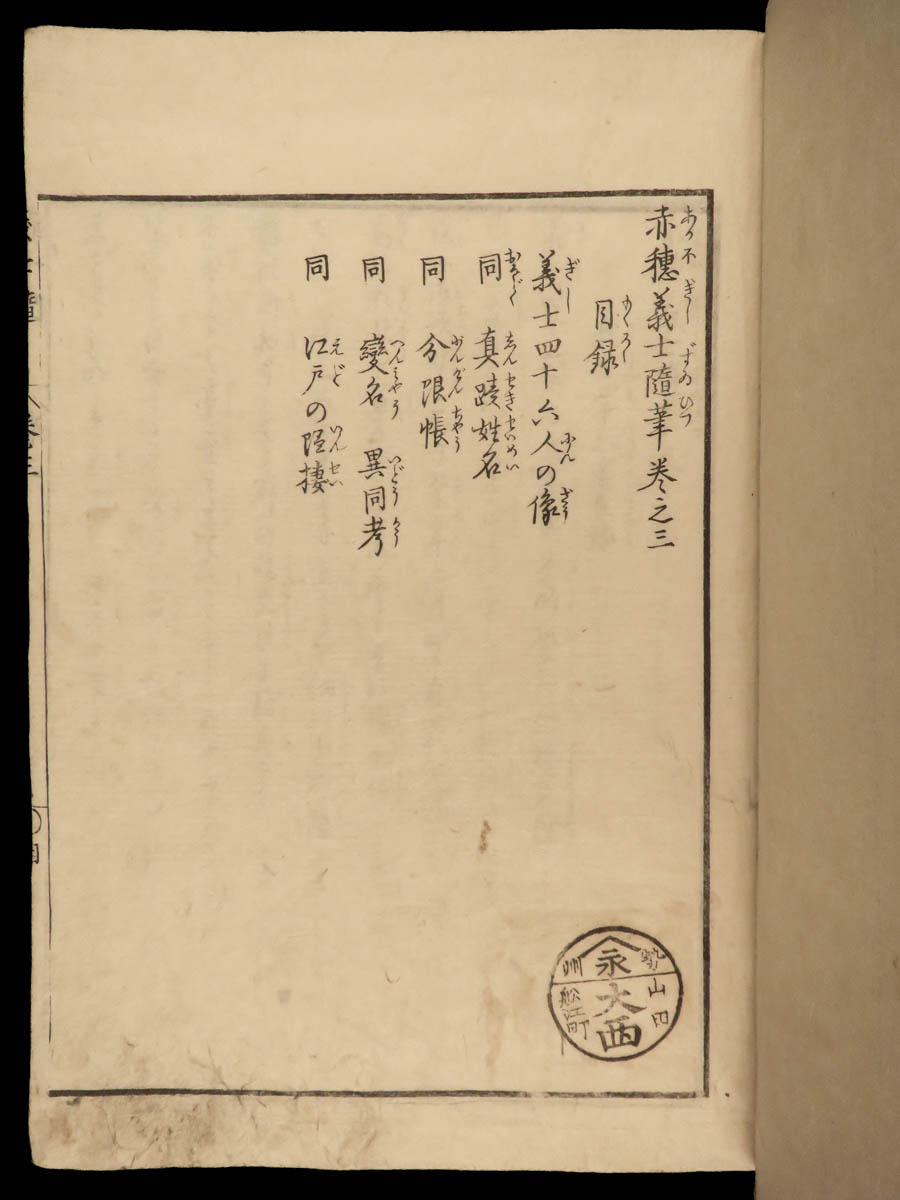 赤穗義士隨筆巻之三
目録
義士四十六人の像
同 真蹟姓名
同 分限帳
同 變名 異同考
同 江戸の隠棲
勢州
永
山田
大西
舩江町